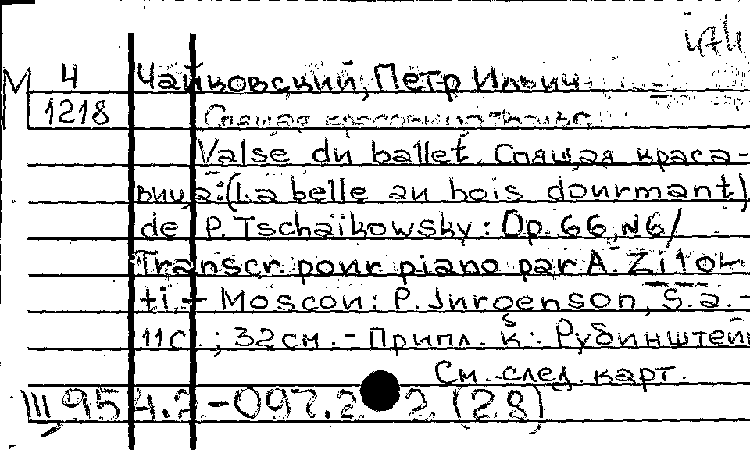 М 4 Чайковский, Петр Ильич
1218 Спящая красавица
Valse du ballet Спящая краса-
вица: (La belle au bois dourmant)
de P. Tschaikowsky: Op. 66, N6/
Transcr. pour piano par A. Zilot-
ti. - Moscou: P. Jurgenson, S.a. -
11с. ; 32 см. - Припл. к: Рубинштейн
См. след. карт.
III, 954.2-097.2 2 (28)